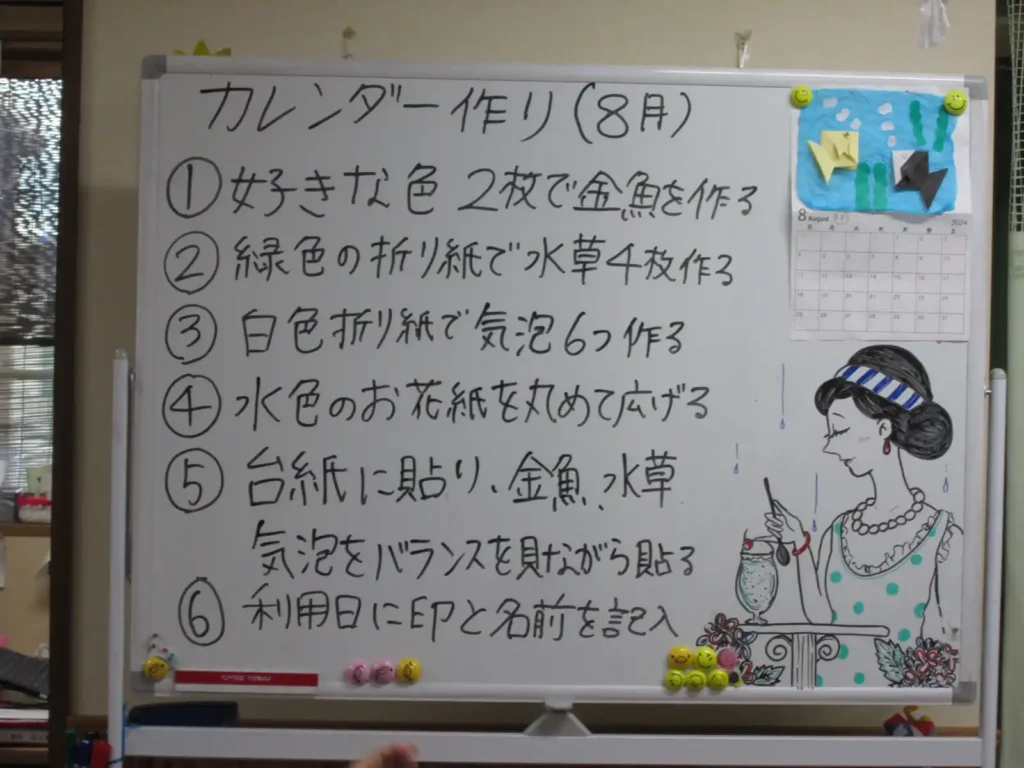 カレンダー作り(8月)
①好きな色 2枚で金魚を作る
②緑色の折り紙で水草4枚作る
③白色折り紙で気泡6つ作る
④水色のお花紙を丸めて広げる
⑤台紙に貼り、金魚、水草
気泡をバランスを見ながら貼る
⑥利用日に印と名前を記入
8 August
2024